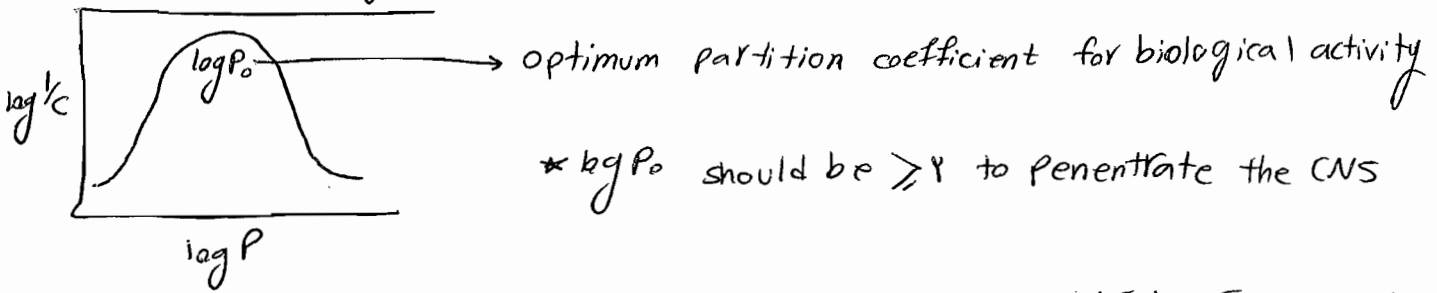 log P₀ → optimum partition coefficient for biological activity
log 1/c
* log P₀ should be ⩾ ۲ to penentrate the CNS
log P